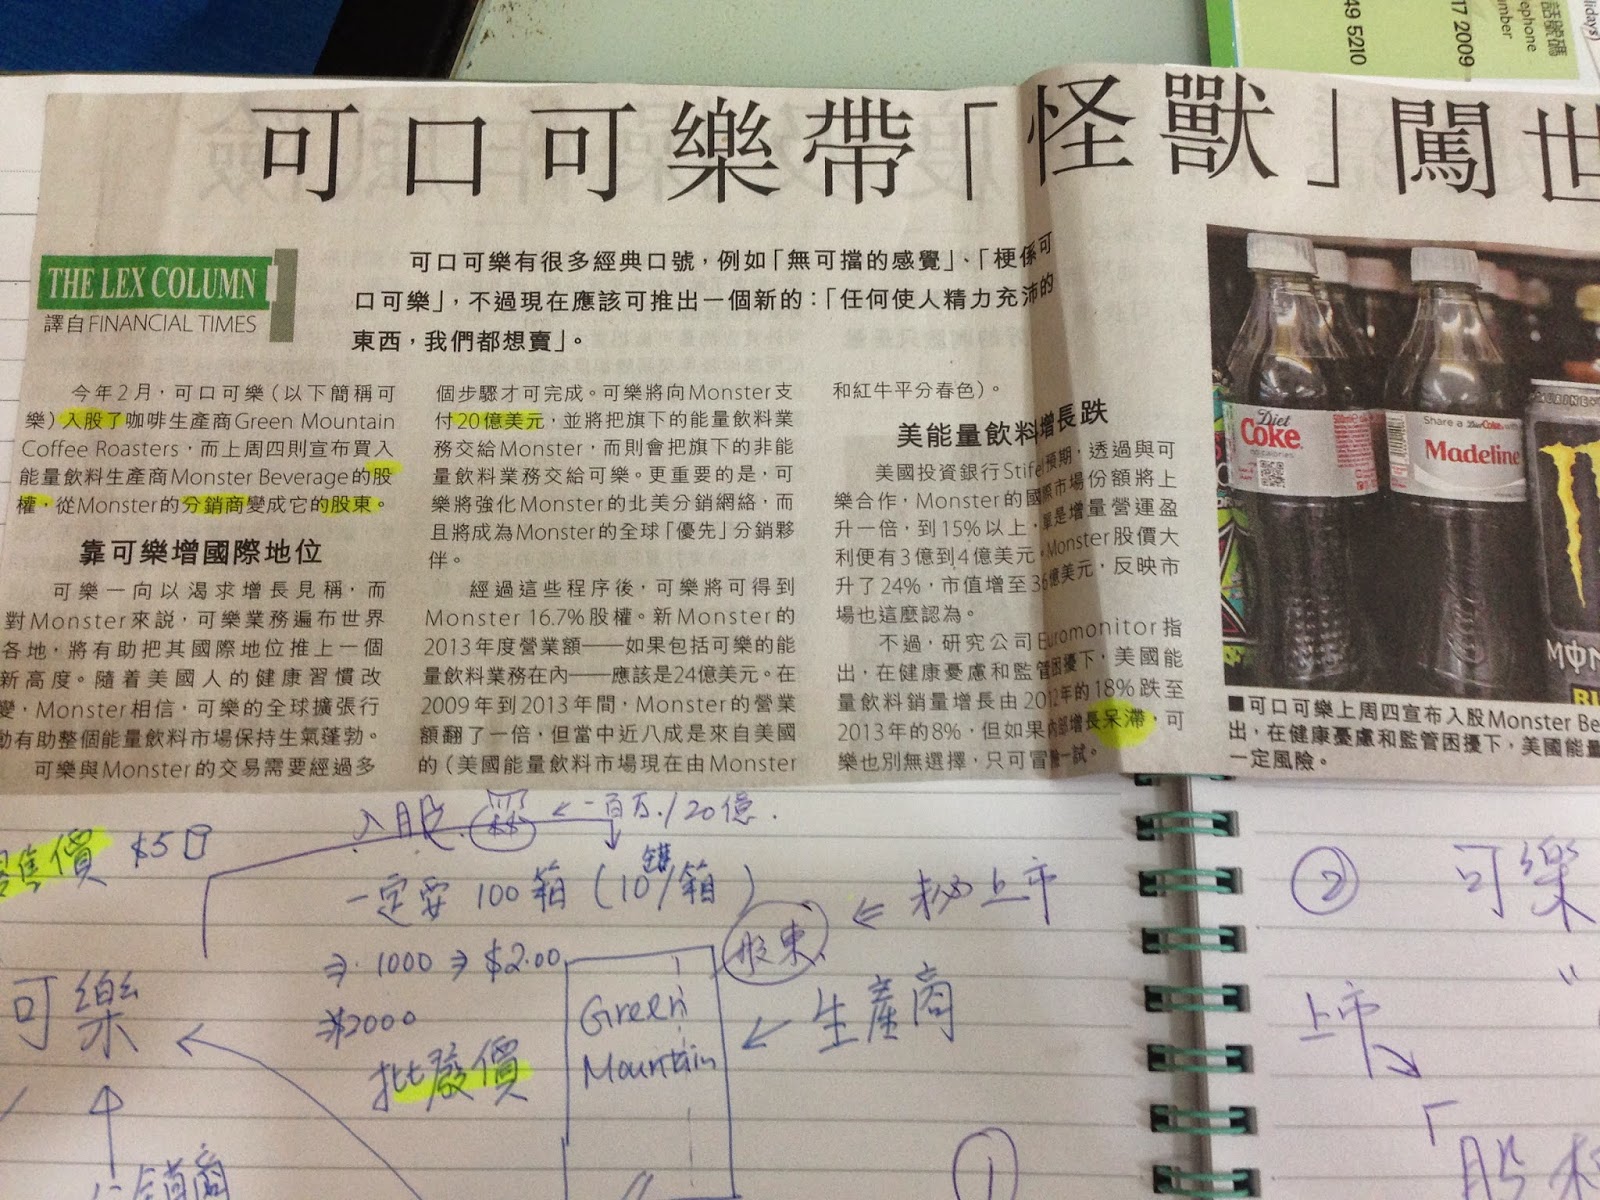 話號碼
ephone
umber
17 2009
49 5210
lidays)
可口可樂帶「怪獸」闖世
THE LEX COLUMN
譯自FINANCIAL TIMES
可口可樂有很多經典口號，例如「無可擋的感覺」、「梗係可
口可樂」，不過現在應該可推出一個新的：「任何使人精力充沛的
東西，我們都想賣」。
今年2月，可口可樂（以下簡稱可
樂）入股了咖啡生產商Green Mountain
Coffee Roasters，而上周四則宣布買入
能量飲料生產商Monster Beverage的股
權，從Monster的分銷商變成它的股東。
靠可樂增國際地位
可樂一向以渴求增長見稱，而
對Monster來說，可樂業務遍布世界
各地，將有助把其國際地位推上一個
新高度。隨着美國人的健康習慣改
變，Monster相信，可樂的全球擴張行
動有助整個能量飲料市場保持生氣蓬勃。
可樂與Monster的交易需要經過多
個步驟才可完成。可樂將向Monster支
付20億美元，並將把旗下的能量飲料業
務交給Monster，而則會把旗下的非能
量飲料業務交給可樂。更重要的是，可
樂將強化Monster的北美分銷網絡，而
且將成為Monster的全球「優先」分銷夥
伴。
經過這些程序後，可樂將可得到
Monster 16.7%股權。新Monster的
2013年度營業額——如果包括可樂的能
量飲料業務在內——應該是24億美元。在
2009年到2013年間，Monster的營業
額翻了一倍，但當中近八成是來自美國
的（美國能量飲料市場現在由Monster
和紅牛平分春色）。
美能量飲料增長跌
美國投資銀行Stifel預期，透過與可
樂合作，Monster的國際市場份額將上
升一倍，到15%以上，單是增量營運盈
利便有3億到4億美元。Monster股價大
升了24%，市值增至36億美元，反映市
場也這麼認為。
不過，研究公司Euromonitor指
出，在健康憂慮和監管困擾下，美國能
量飲料銷量增長由2012年的18%跌至
2013年的8%，但如果內部增長呆滯，可
樂也別無選擇，只可冒險一試。
Diet
Coke
no calories
Share a Diet Coke with
Madeline
■可口可樂上周四宣布入股Monster Be
出，在健康憂慮和監管困擾下，美國能量
一定風險。
入股 ← 一百万/20億.
售價 $5
一定要 100箱（10罐/箱）
⇒ 1000 ⇒ $2.00
⇒$2000
批發價
可樂
分銷商
Green
Mountain
股東
← 生產商
上市
①
② 可樂
"
上市
「
股